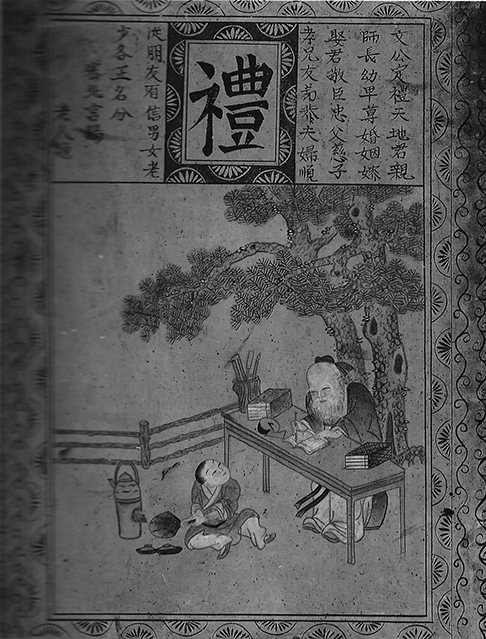 文公定禮天地君親
師長幼卑尊婚姻嫁
娶君敬臣忠父慈子
孝兄友弟恭夫婦順
禮
朋友有信男女老
少各正名分